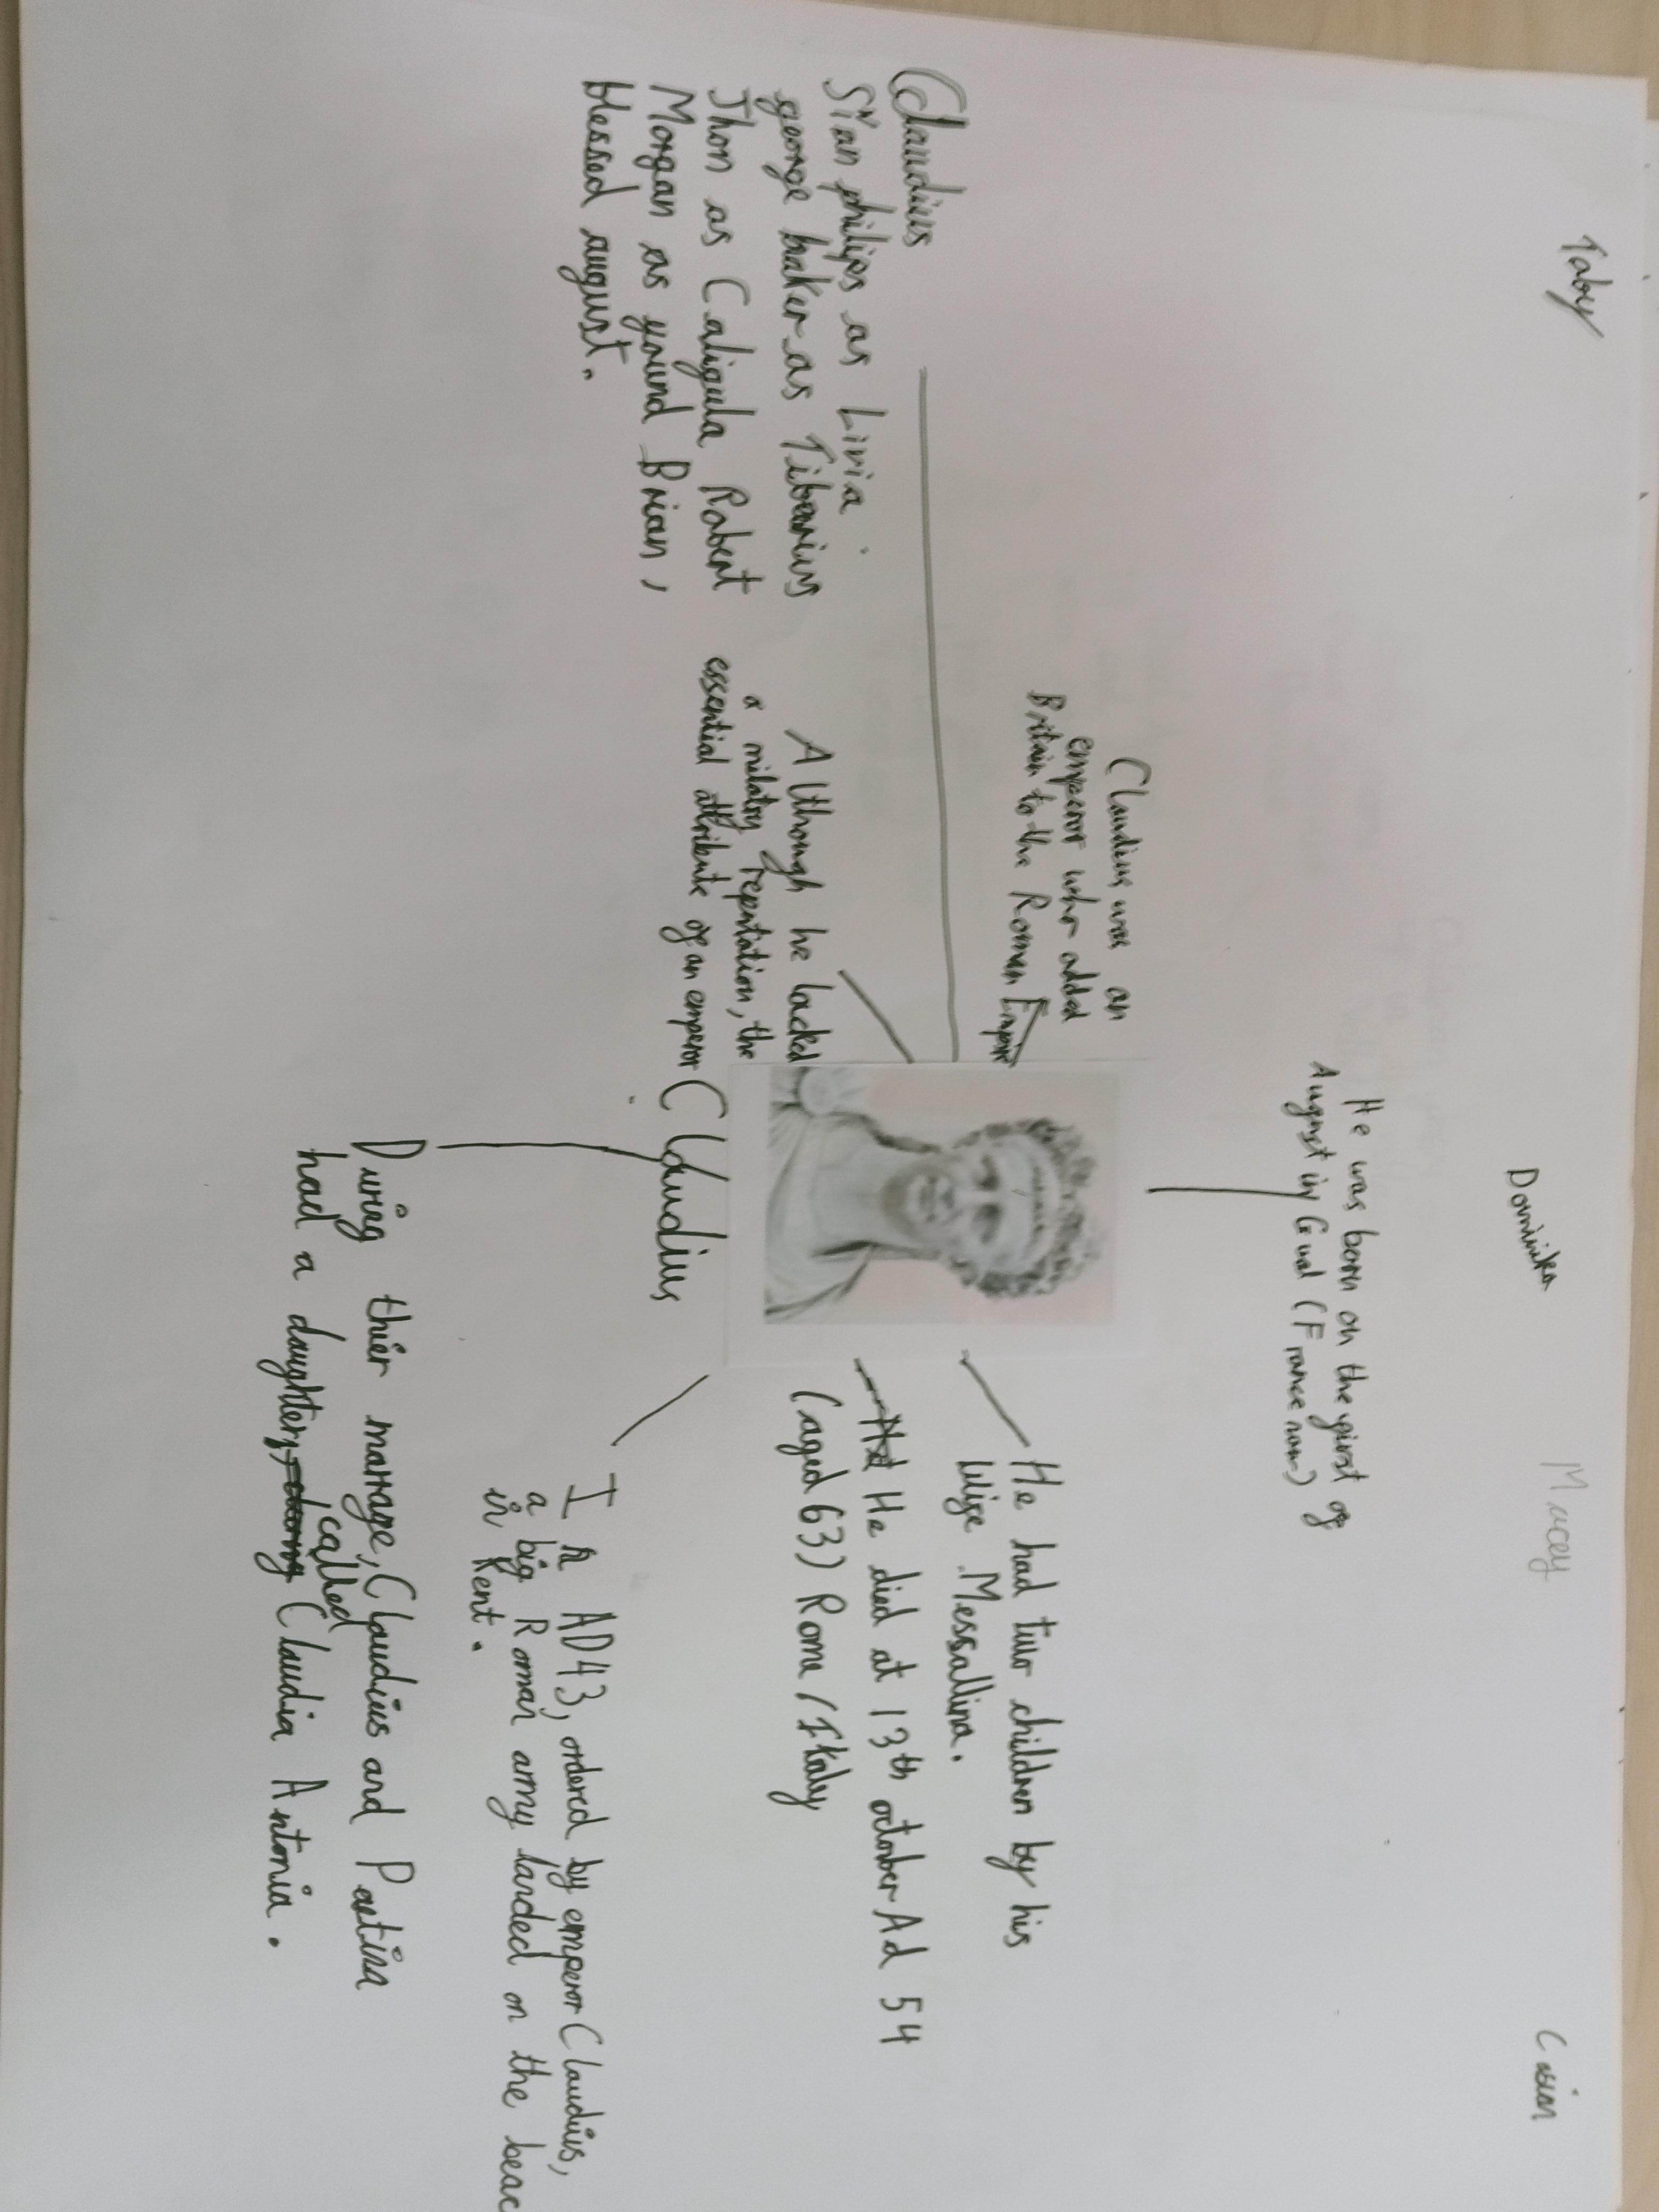 Taby
Dominika
Macey
Casian
He was born on the first of
August in Gual (France now)
Claudius was an
emperor who added
Britain to the Roman Empire
Claudius
Sian philips as Livia
george baker as Tiberius
Jhon as Caligula Robert
Morgan as yound Brian,
blessed august.
Although he lacked
a militry reputation, the
essential attribute of an emperor
Claudius
He had two children by his
wife Messallina.
He died at 13th octomber Ad 54
(aged 63) Rome / Itialy
In AD43, ordered by emperor Claudius,
a big Roman army landed on the beac
in Kent.
During thier marrage, Claudius and Paetina
had a daughter, called Claudia Antonia.